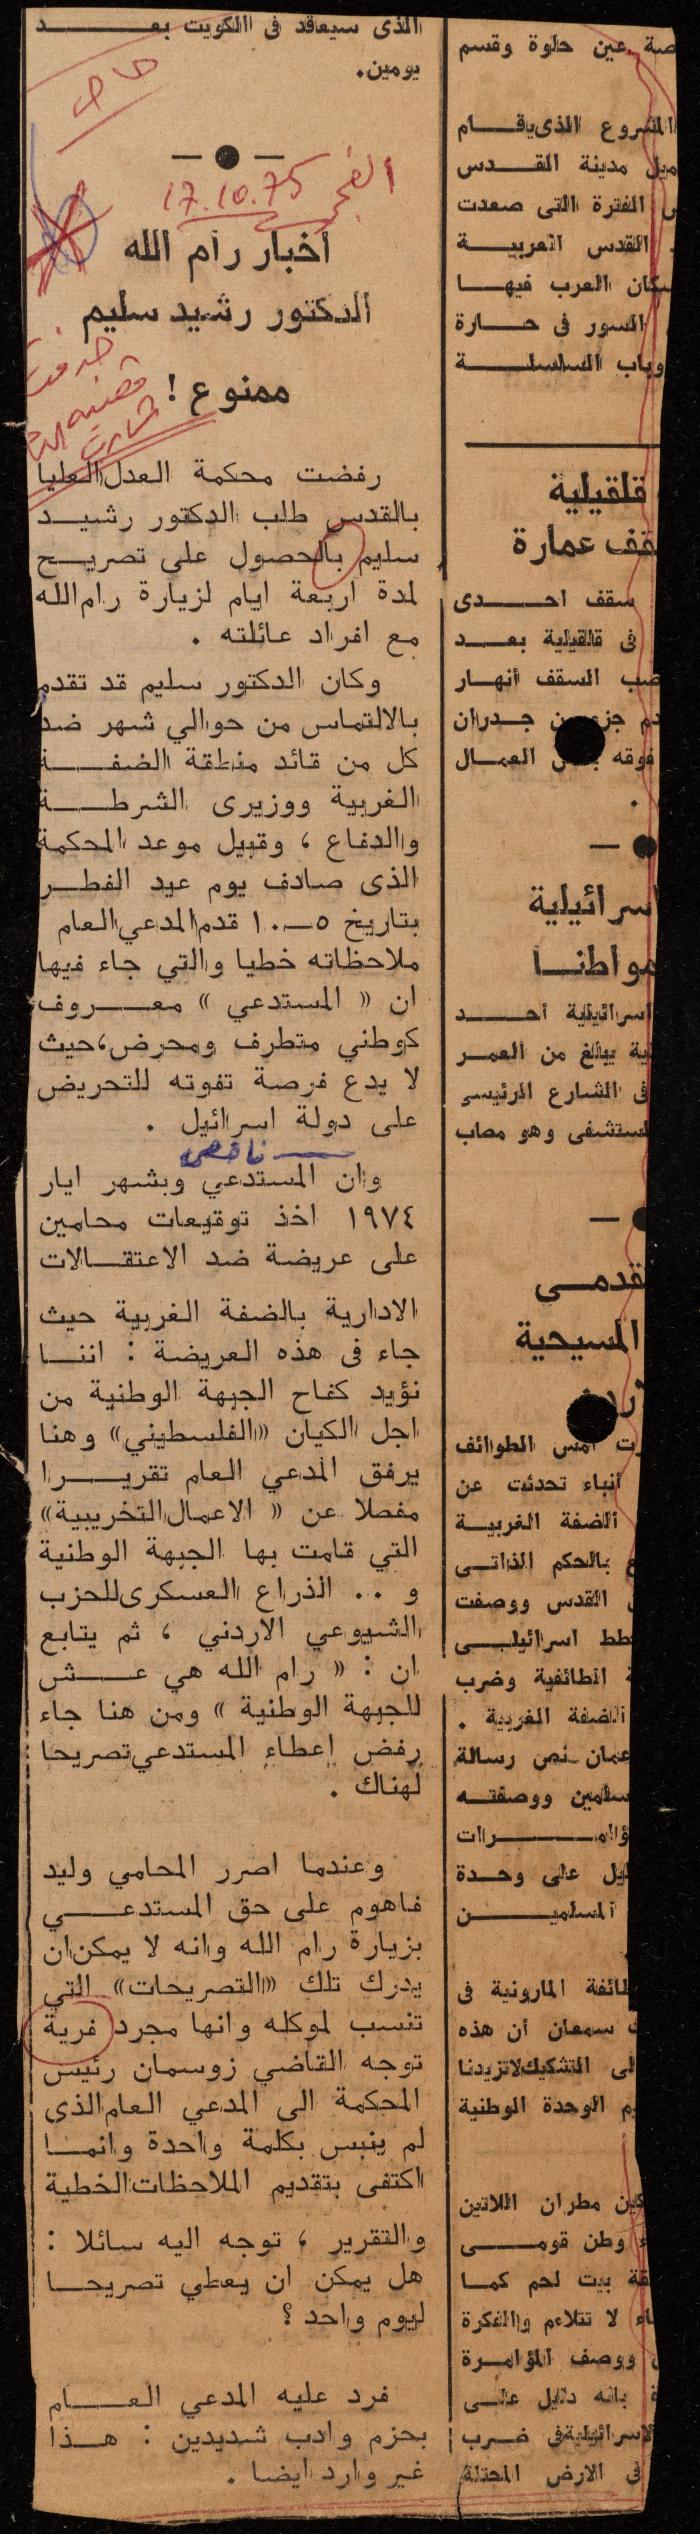 الذى سيعاقد فى الكويت بعد
يومين.
الفجر
17.10.75
أخبار رام الله
الدكتور رشيد سليم
ممنوع !
رفضت محكمة العدل العليا
بالقدس طلب الدكتور رشيد
سليم بالحصول على تصريح
لمدة اربعة ايام لزيارة رام الله
مع افراد عائلته .
وكان الدكتور سليم قد تقدم
بالالتماس من حوالي شهر ضد
كل من قائد منطقة الضفة
الغربية ووزيرى الشرطة
والدفاع ، وقبيل موعد المحكمة
الذى صادف يوم عيد الفطر
بتاريخ ٥-١٠ قدم المدعي العام
ملاحظاته خطيا والتي جاء فيها
ان « المستدعي » معروف
كوطني متطرف ومحرض، حيث
لا يدع فرصة تفوته للتحريض
على دولة اسرائيل .
ناقص
وان المستدعي وبشهر ايار
١٩٧٤ اخذ توقيعات محامين
على عريضة ضد الاعتقالات
الادارية بالضفة الغربية حيث
جاء فى هذه العريضة : اننا
نؤيد كفاح الجبهة الوطنية من
اجل الكيان «الفلسطيني» وهنا
يرفق المدعي العام تقريرا
مفصلا عن « الاعمال التخريبية»
التي قامت بها الجبهة الوطنية
و .. الذراع العسكرى للحزب
الشيوعي الاردني ، ثم يتابع
ان : « رام الله هي عش
للجبهة الوطنية » ومن هنا جاء
رفض اعطاء المستدعي تصريحا
لهناك .
وعندما اصرر المحامي وليد
فاهوم على حق المستدعي
بزيارة رام الله وانه لا يمكن ان
يدرك تلك «التصريحات» التي
تنسب لموكله وانها مجرد فرية
توجه القاضي زوسمان رئيس
المحكمة الى المدعي العام الذى
لم ينبس بكلمة واحدة وانما
اكتفى بتقديم الملاحظات الخطية
والتقرير ، توجه اليه سائلا :
هل يمكن ان يعطي تصريحا
ليوم واحد ؟
فرد عليه المدعي العام
بحزم وادب شديدين : هذا
غير وارد ايضا .
عين حلوة وقسم
المشروع الذى يقام
ميل مدينة القدس
الفترة التى صعدت
القدس العربية
سكان العرب فيها
السور فى حارة
وباب السلسلة
قلقيلية
سقف عمارة
سقف احدى
فى قلقيلية بعد
صب السقف أنهار
جدران
فوقه العمال
.
اسرائيلية
مواطنا
اسرائيلية أحد
يبالغ من العمر
فى الشارع الرئيسى
المستشفى وهو مصاب
المسيحية
أمس الطوائف
أنباء تحدثت عن
الضفة الغربية
بالحكم الذاتى
القدس ووصفت
اسرائيلى
الطائفية وضرب
الضفة الغربية .
عمان نص رسالة
ووصفته
على وحدة
المسلمين
الطائفة المارونية فى
سمعان أن هذه
التشكيك لاتزيدنا
الوحدة الوطنية
مطران اللاتين
وطن قومى
بيت لحم كما
لا تتلاءم والفكرة
ووصف المؤامرة
بأنه دليل على
الاسرائيلية فى ضرب
فى الارض المحتلة